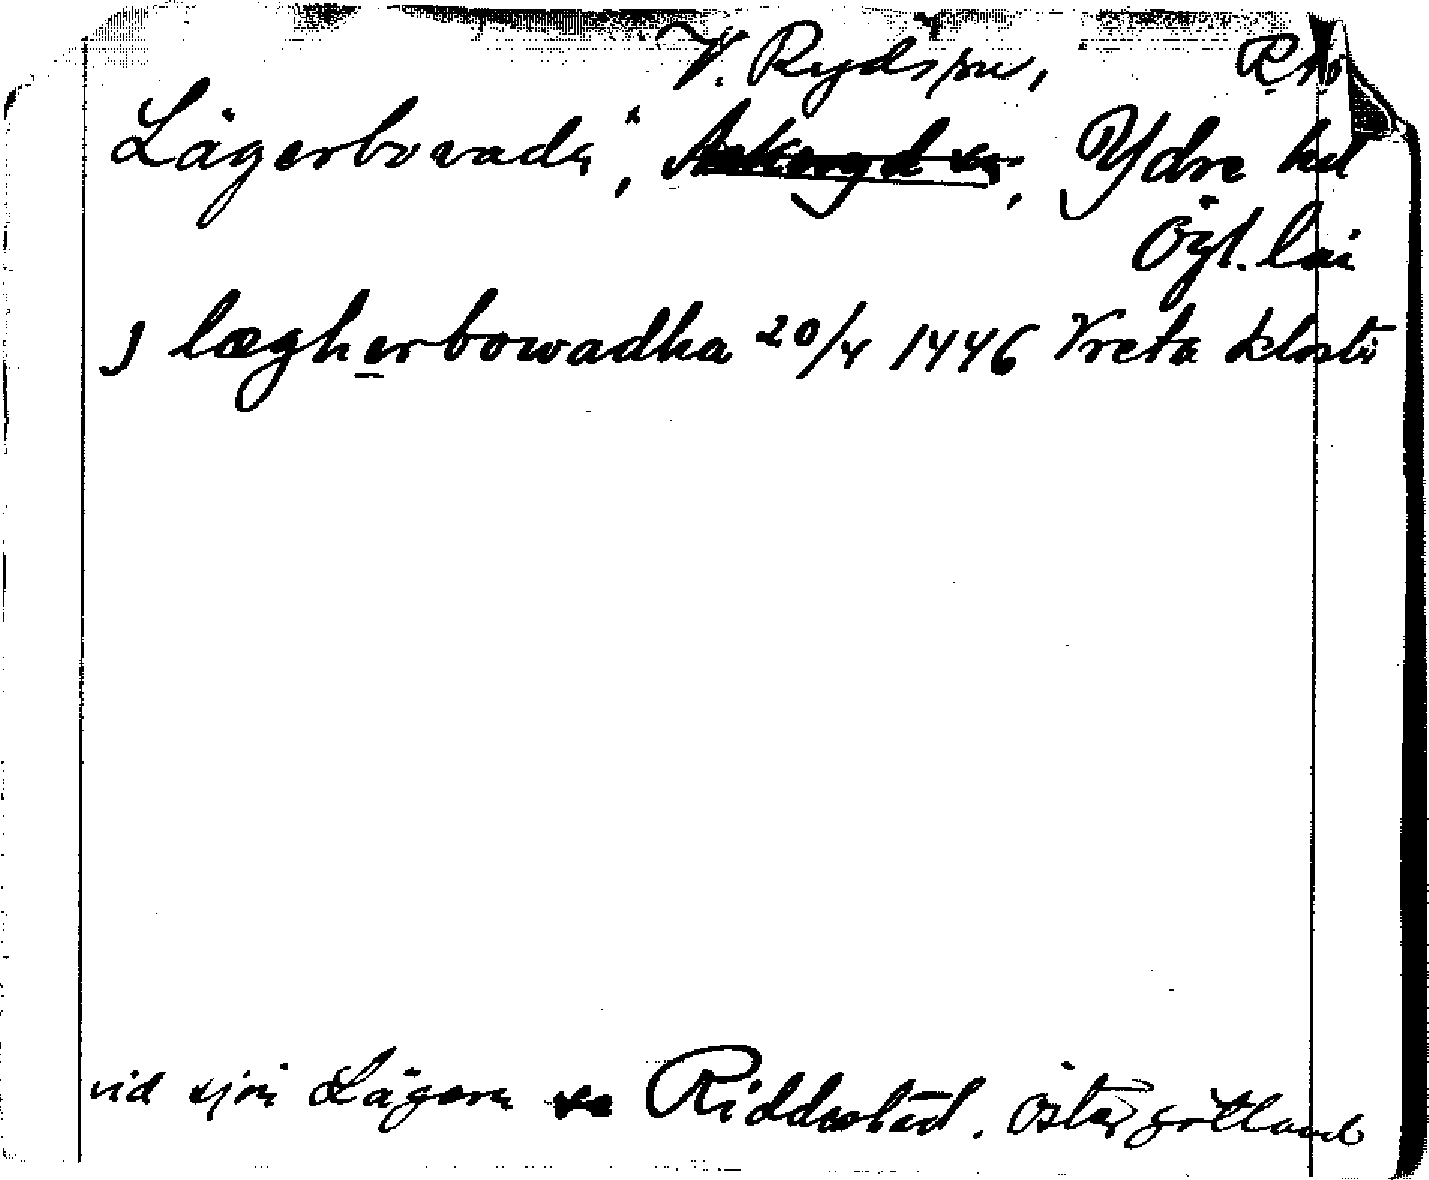 V. Ryds sn,
Lägerbovada, Askeryd sn, Ydre hd
Ögl. län
J lægherbowadha 20/4 1446 Vreta kloster
vid sjön Lägern se Riddestad. Östergötland